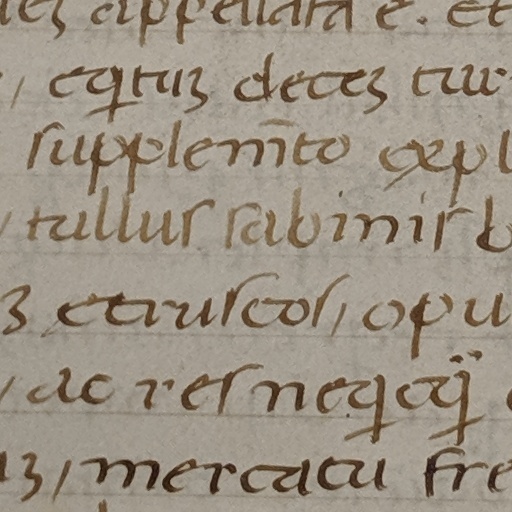 appellata ē. et
eqtuʒ deceʒ tur
supplem̄to expl
tullus sabinis b
ʒ etruscos, opu
ac res neqq̈
ʒ, mercatu fre